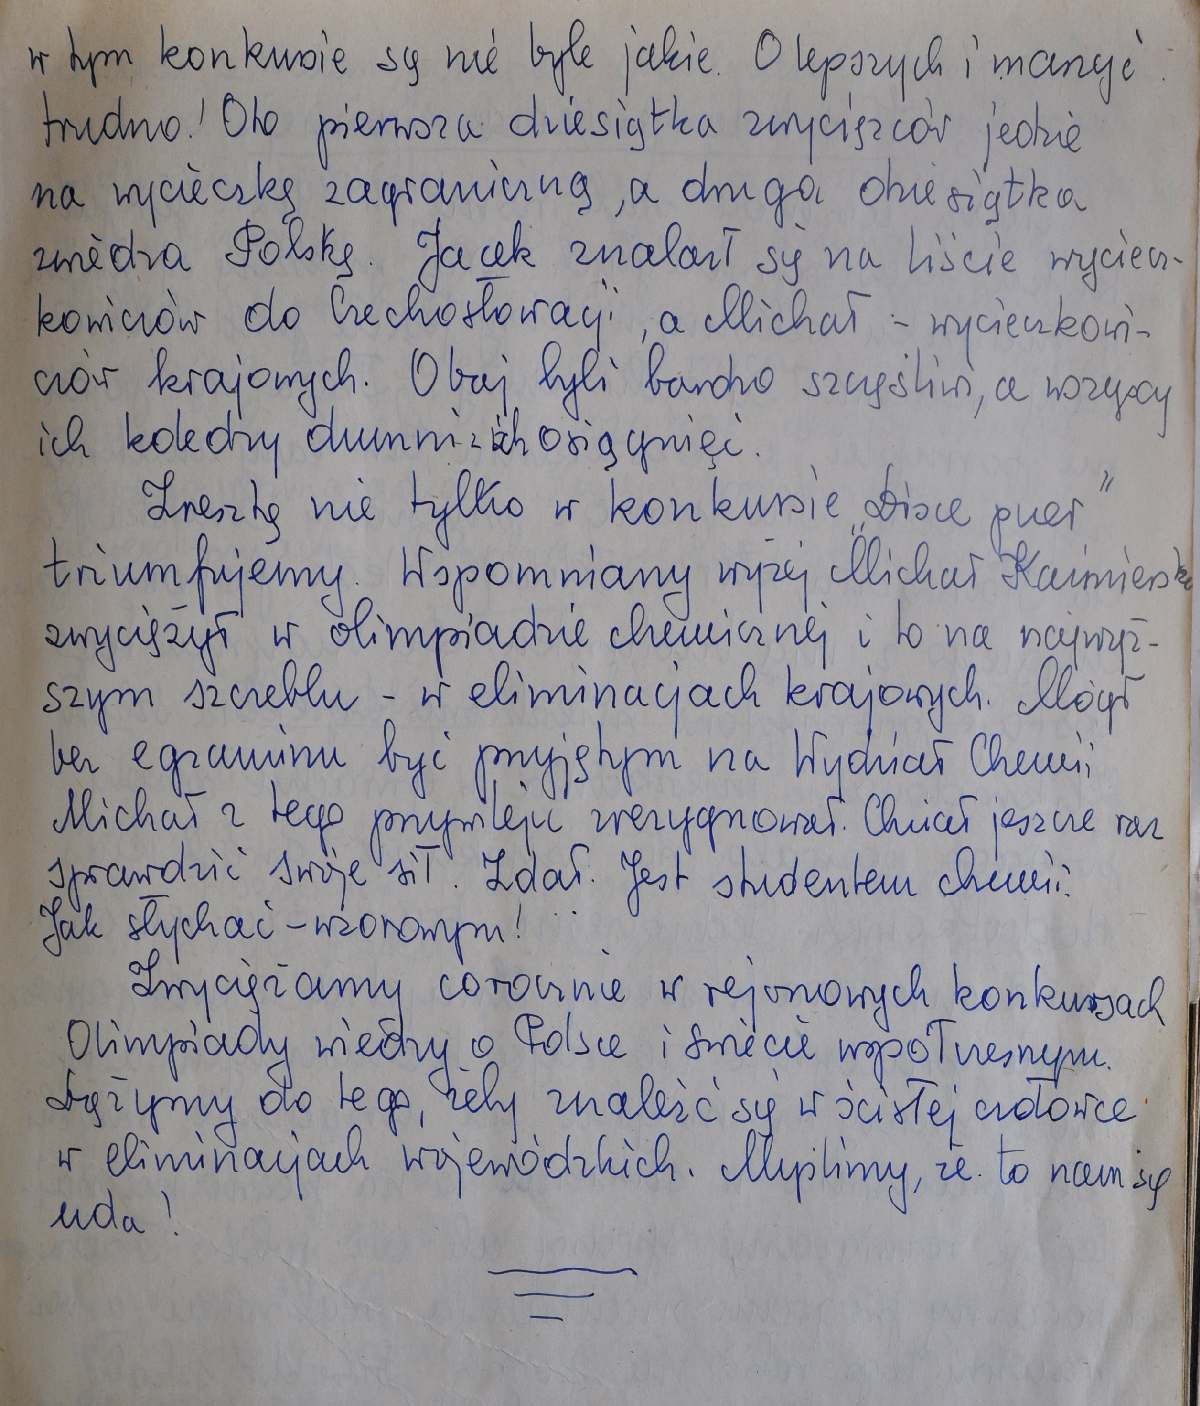 w tym konkursie są nie byle jakie. O lepszych i marzyć
trudno! Oto pierwsza dziesiątka zwycięzców jedzie
na wycieczkę zagraniczną, a druga dziesiątka
zwiedza Polskę. Jacek znalazł się na liście wyciecz-
kowiczów do Czechosłowacji, a Michał - wycieczkowi-
czów krajowych. Obaj byli bardzo szczęśliwi, a wszyscy
ich koledzy dumni z ich osiągnięć.
Zresztą nie tylko w konkursie „Disce puer"
triumfujemy. Wspomniany wyżej Michał Kaźmierski
zwyciężył w olimpiadzie chemicznej i to na najwyż-
szym szczeblu - w eliminacjach krajowych. Mógł
bez egzaminu być przyjętym na Wydział Chemii
Michał z tego przywileju zrezygnował. Chciał jeszcze raz
sprawdzić swoje sił. Zdał. Jest studentem chemii.
Jak słychać - wzorowym!
Zwyciężamy corocznie w rejonowych konkursach
Olimpiady wiedzy o Polsce i świecie współczesnym.
Dążymy do tego, żeby znaleźć się w ścisłej czołówce
w eliminacjach wojewódzkich. Myślimy, że to nam się
uda!